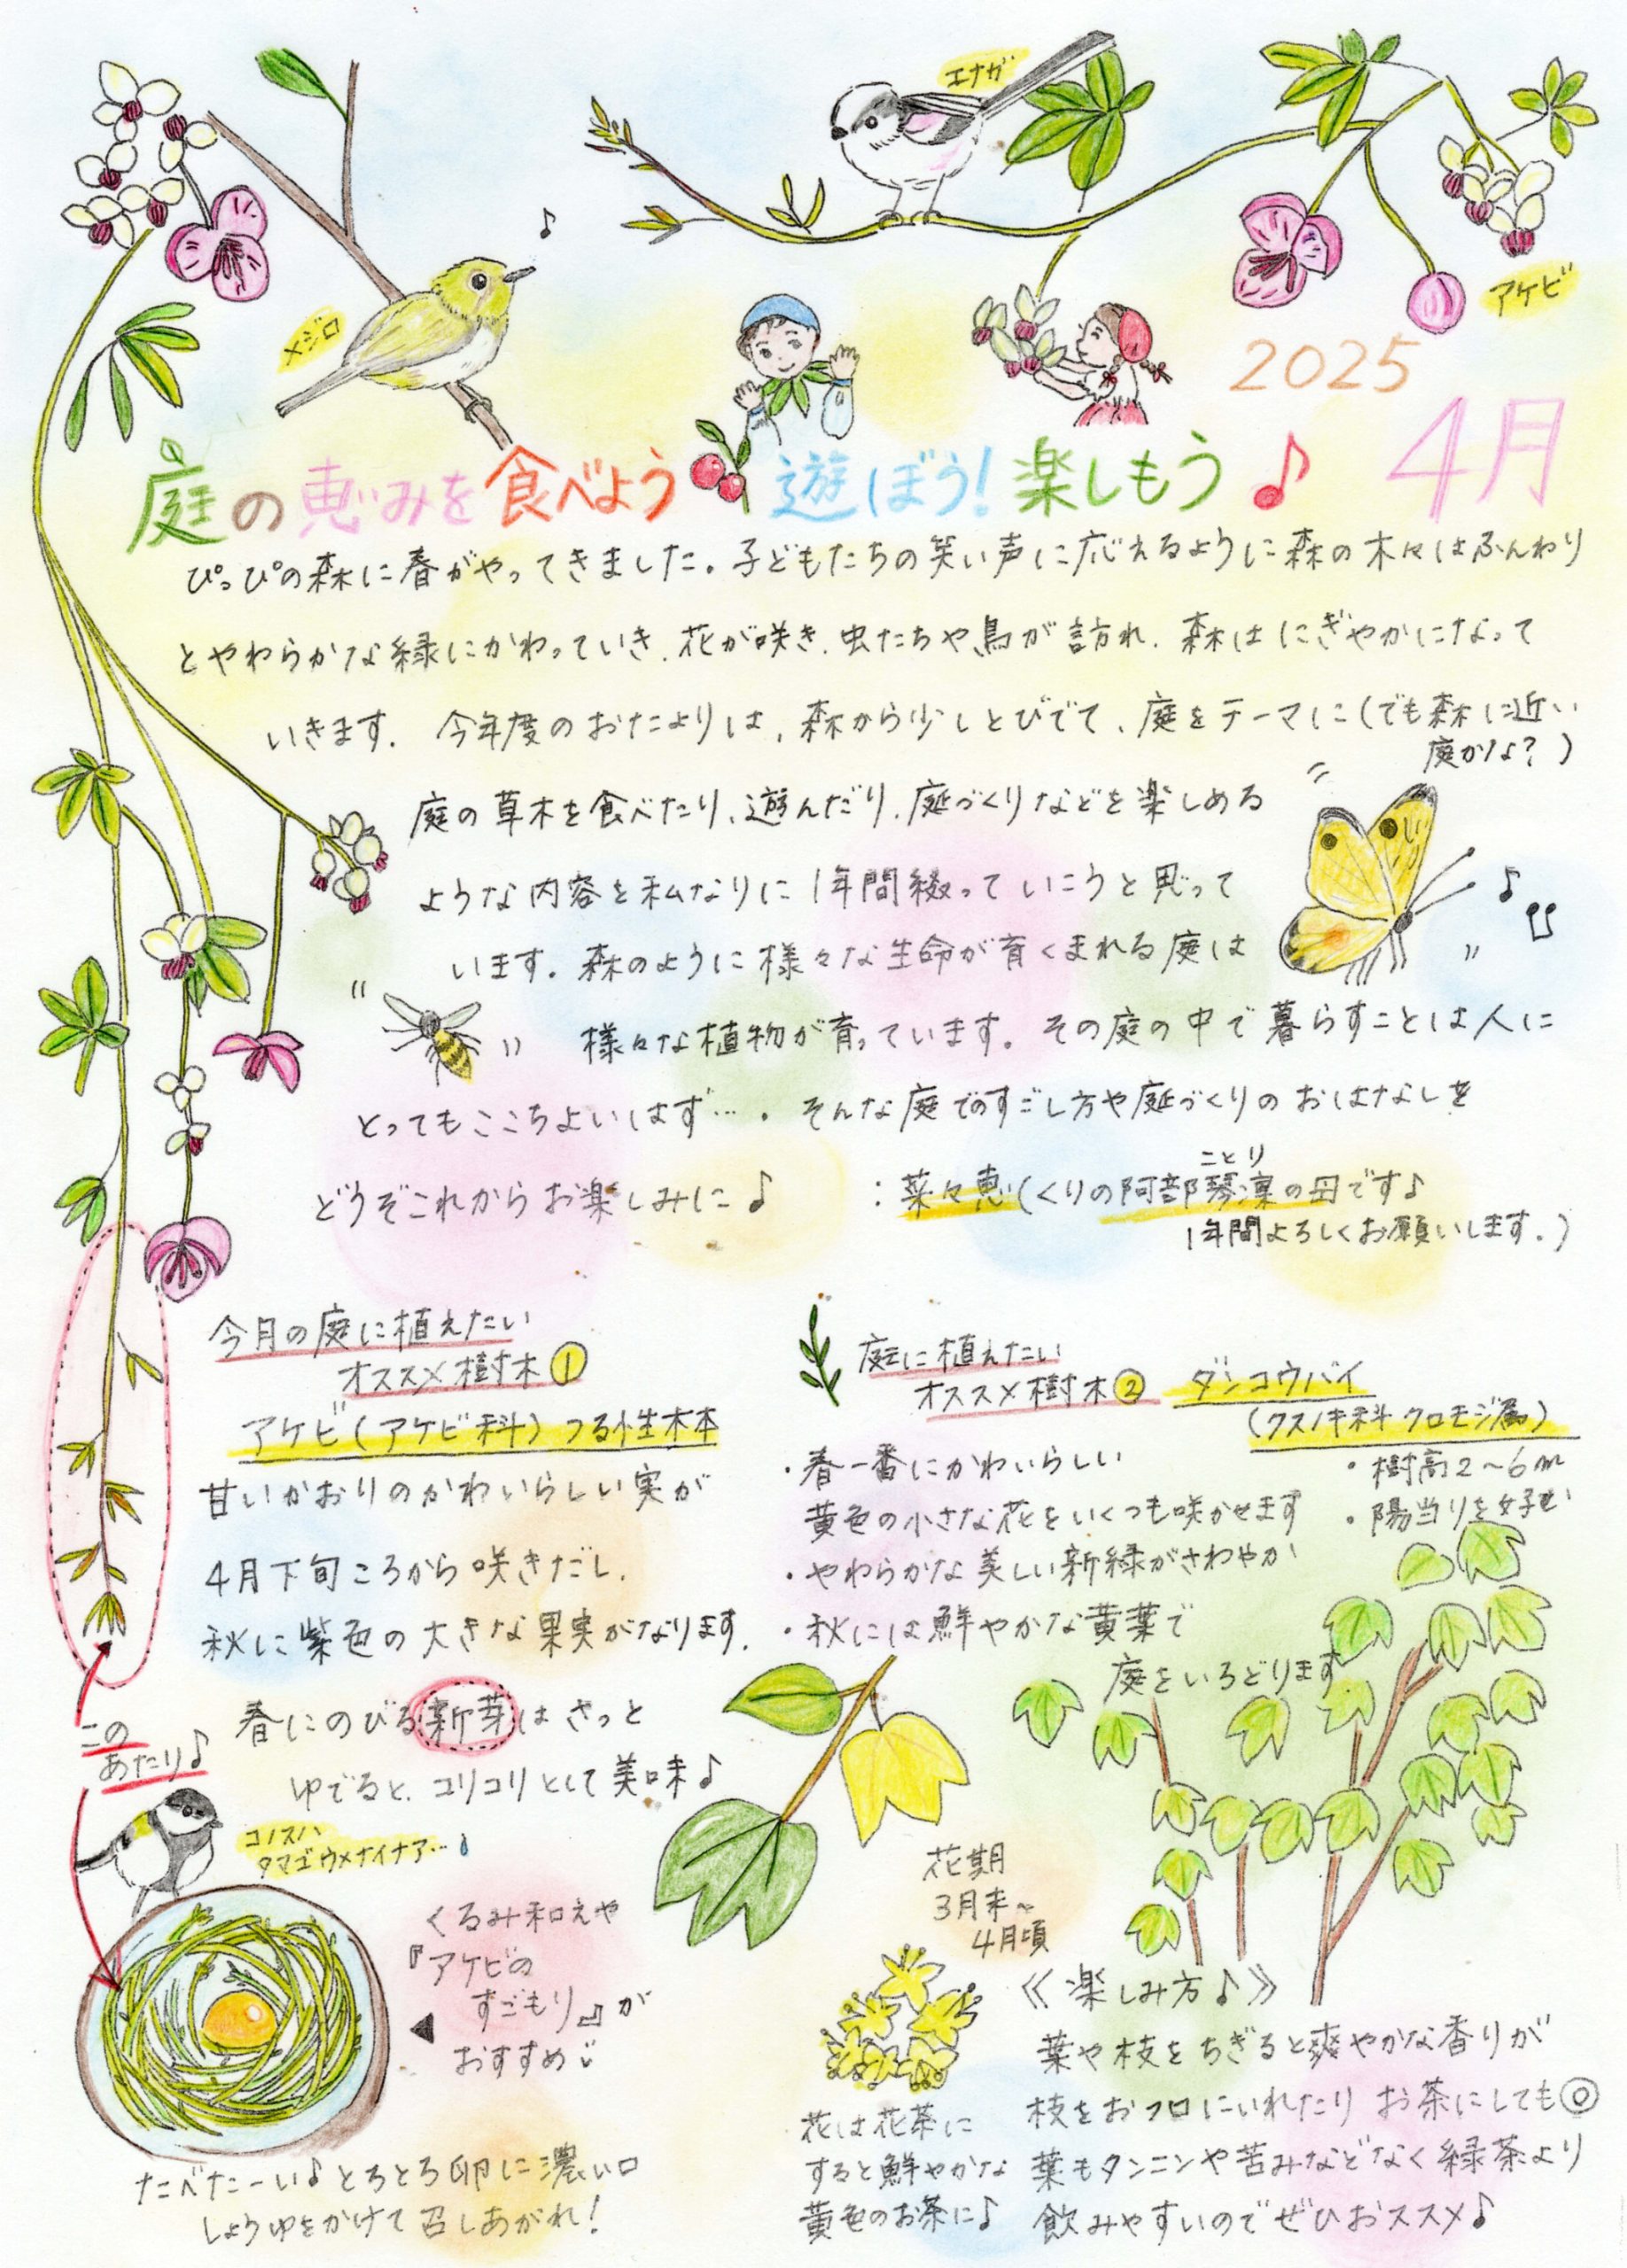 エナガ
メジロ
アケビ
2025
4月
庭の恵みを食べよう 遊ぼう!楽しもう♪
ぴっぴの森に春がやってきました。子どもたちの笑い声に応えるように森の木々はふんわり
とやわらかな緑にかわっていき、花が咲き、虫たちや鳥が訪れ、森はにぎやかになって
いきます。 今年度のおたよりは、森から少しとびでて、庭をテーマに(でも森に近い
庭かな?)
庭の草木を食べたり、遊んだり、庭づくりなどを楽しめる
ような内容を私なりに1年間綴っていこうと思って
います。森のように様々な生命が育くまれる庭は
様々な植物が育っています。その庭の中で暮らすことは人に
とってもここちよいはず…。そんな庭でのすごし方や庭づくりのおはなしを
どうぞこれからお楽しみに♪
ことり
:菜々恵(くりの阿部琴凜の母です♪
1年間よろしくお願いします。)
今月の庭に植えたい
オススメ樹木①
アケビ(アケビ科)つる性木本
甘いかおりのかわいらしい実が
4月下旬ころから咲きだし、
秋に紫色の大きな果実がなります。
春にのびる新芽はさっと
ゆでると、コリコリとして美味♪
この
あたり♪
コノスハ
タマゴウメナイナア…
くるみ和えや
『アケビの
すごもり』が
おすすめ
たべたーい♪とろとろ卵に濃い口
しょうゆをかけて召しあがれ!
庭に植えたい
オススメ樹木② ダンコウバイ
(クスノキ科クロモジ属)
・春一番にかわいらしい
黄色の小さな花をいくつも咲かせます
・やわらかな美しい新緑がさわやか
・秋には鮮やかな黄葉で
庭をいろどります
・樹高2〜6m
・陽当りを好む
花期
3月末〜
4月頃
花は花茶に
すると鮮やかな
黄色のお茶に♪
《楽しみ方♪》
葉や枝をちぎると爽やかな香りが
枝をおフロにいれたり お茶にしても◎
葉もタンニンや苦みなどなく緑茶より
飲みやすいのでぜひおススメ♪